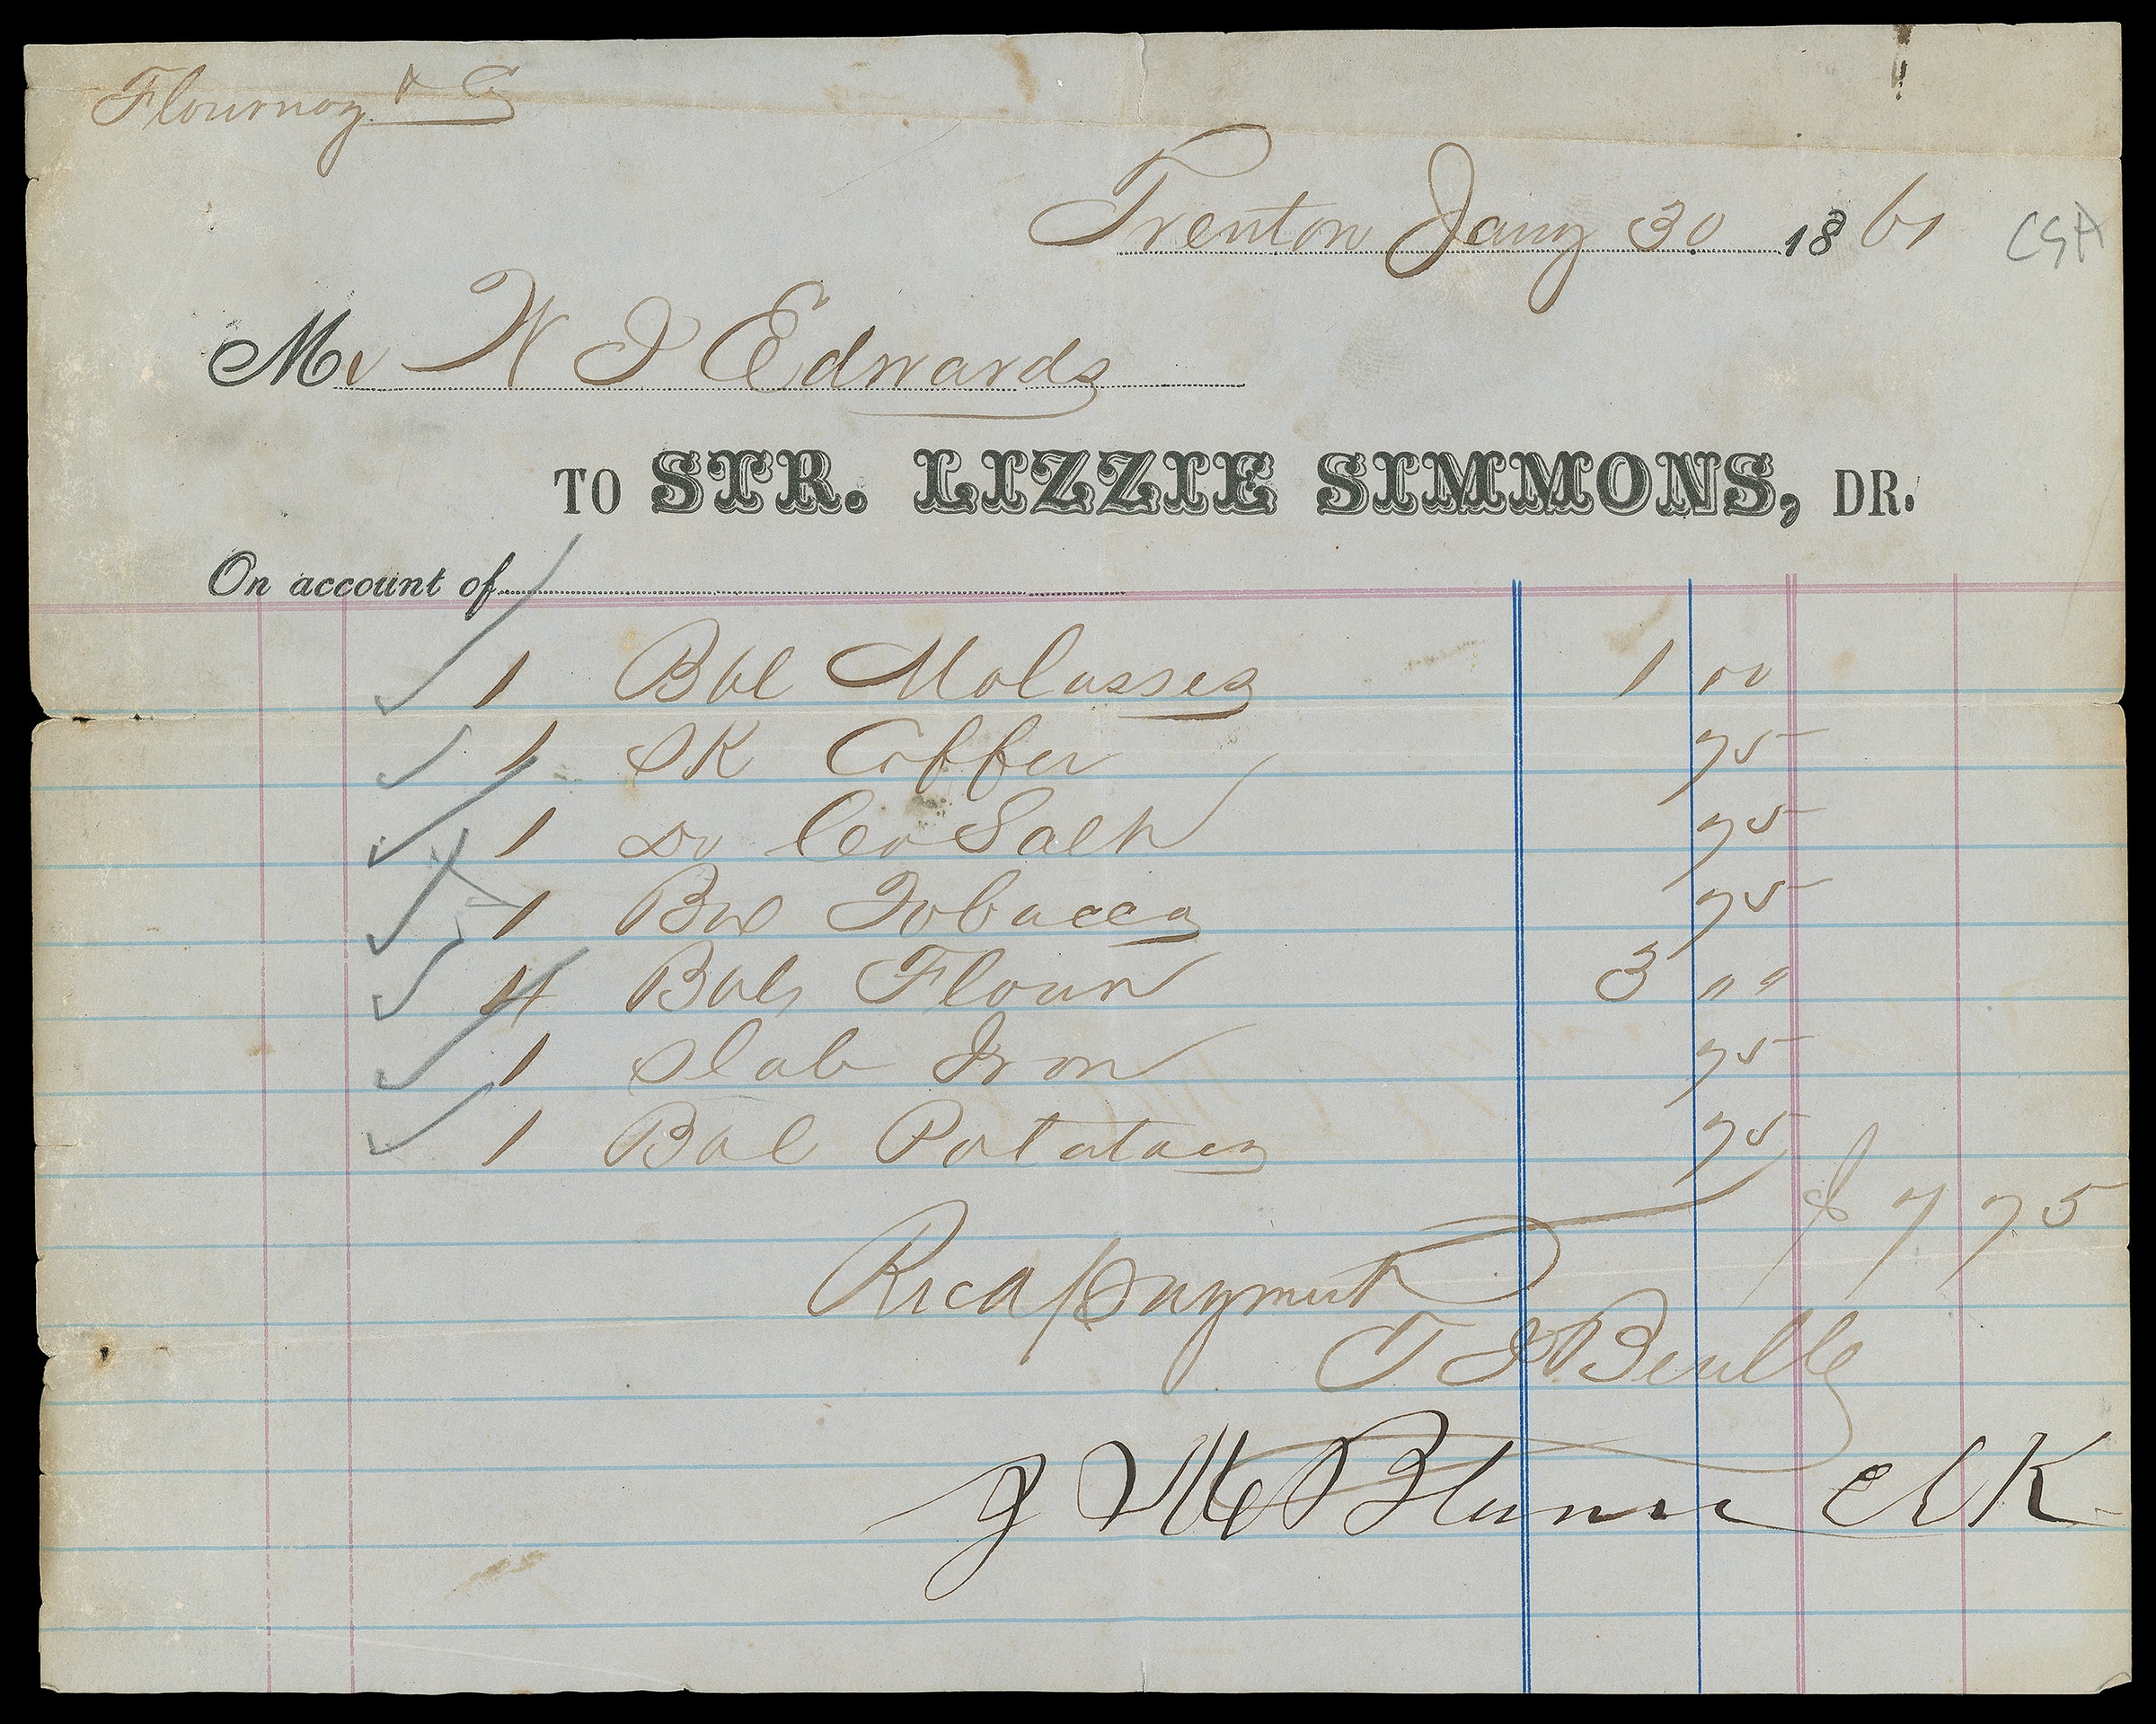 Flournoy & Co
Trenton Jany 30 1861
CSA
Mr W J Edwards
TO STR. LIZZIE SIMMONS, DR.
On account of
1 Bbl Molasses 1 00
1 SK Coffee 75
1 Do Co Salt 75
1 Box Tobacco 75
4 Bbls Flour 3 00
1 Slab Iron 75
1 Bbl Potatoes 75
$ 7 75
Recd payment
T J
J Mc Clk